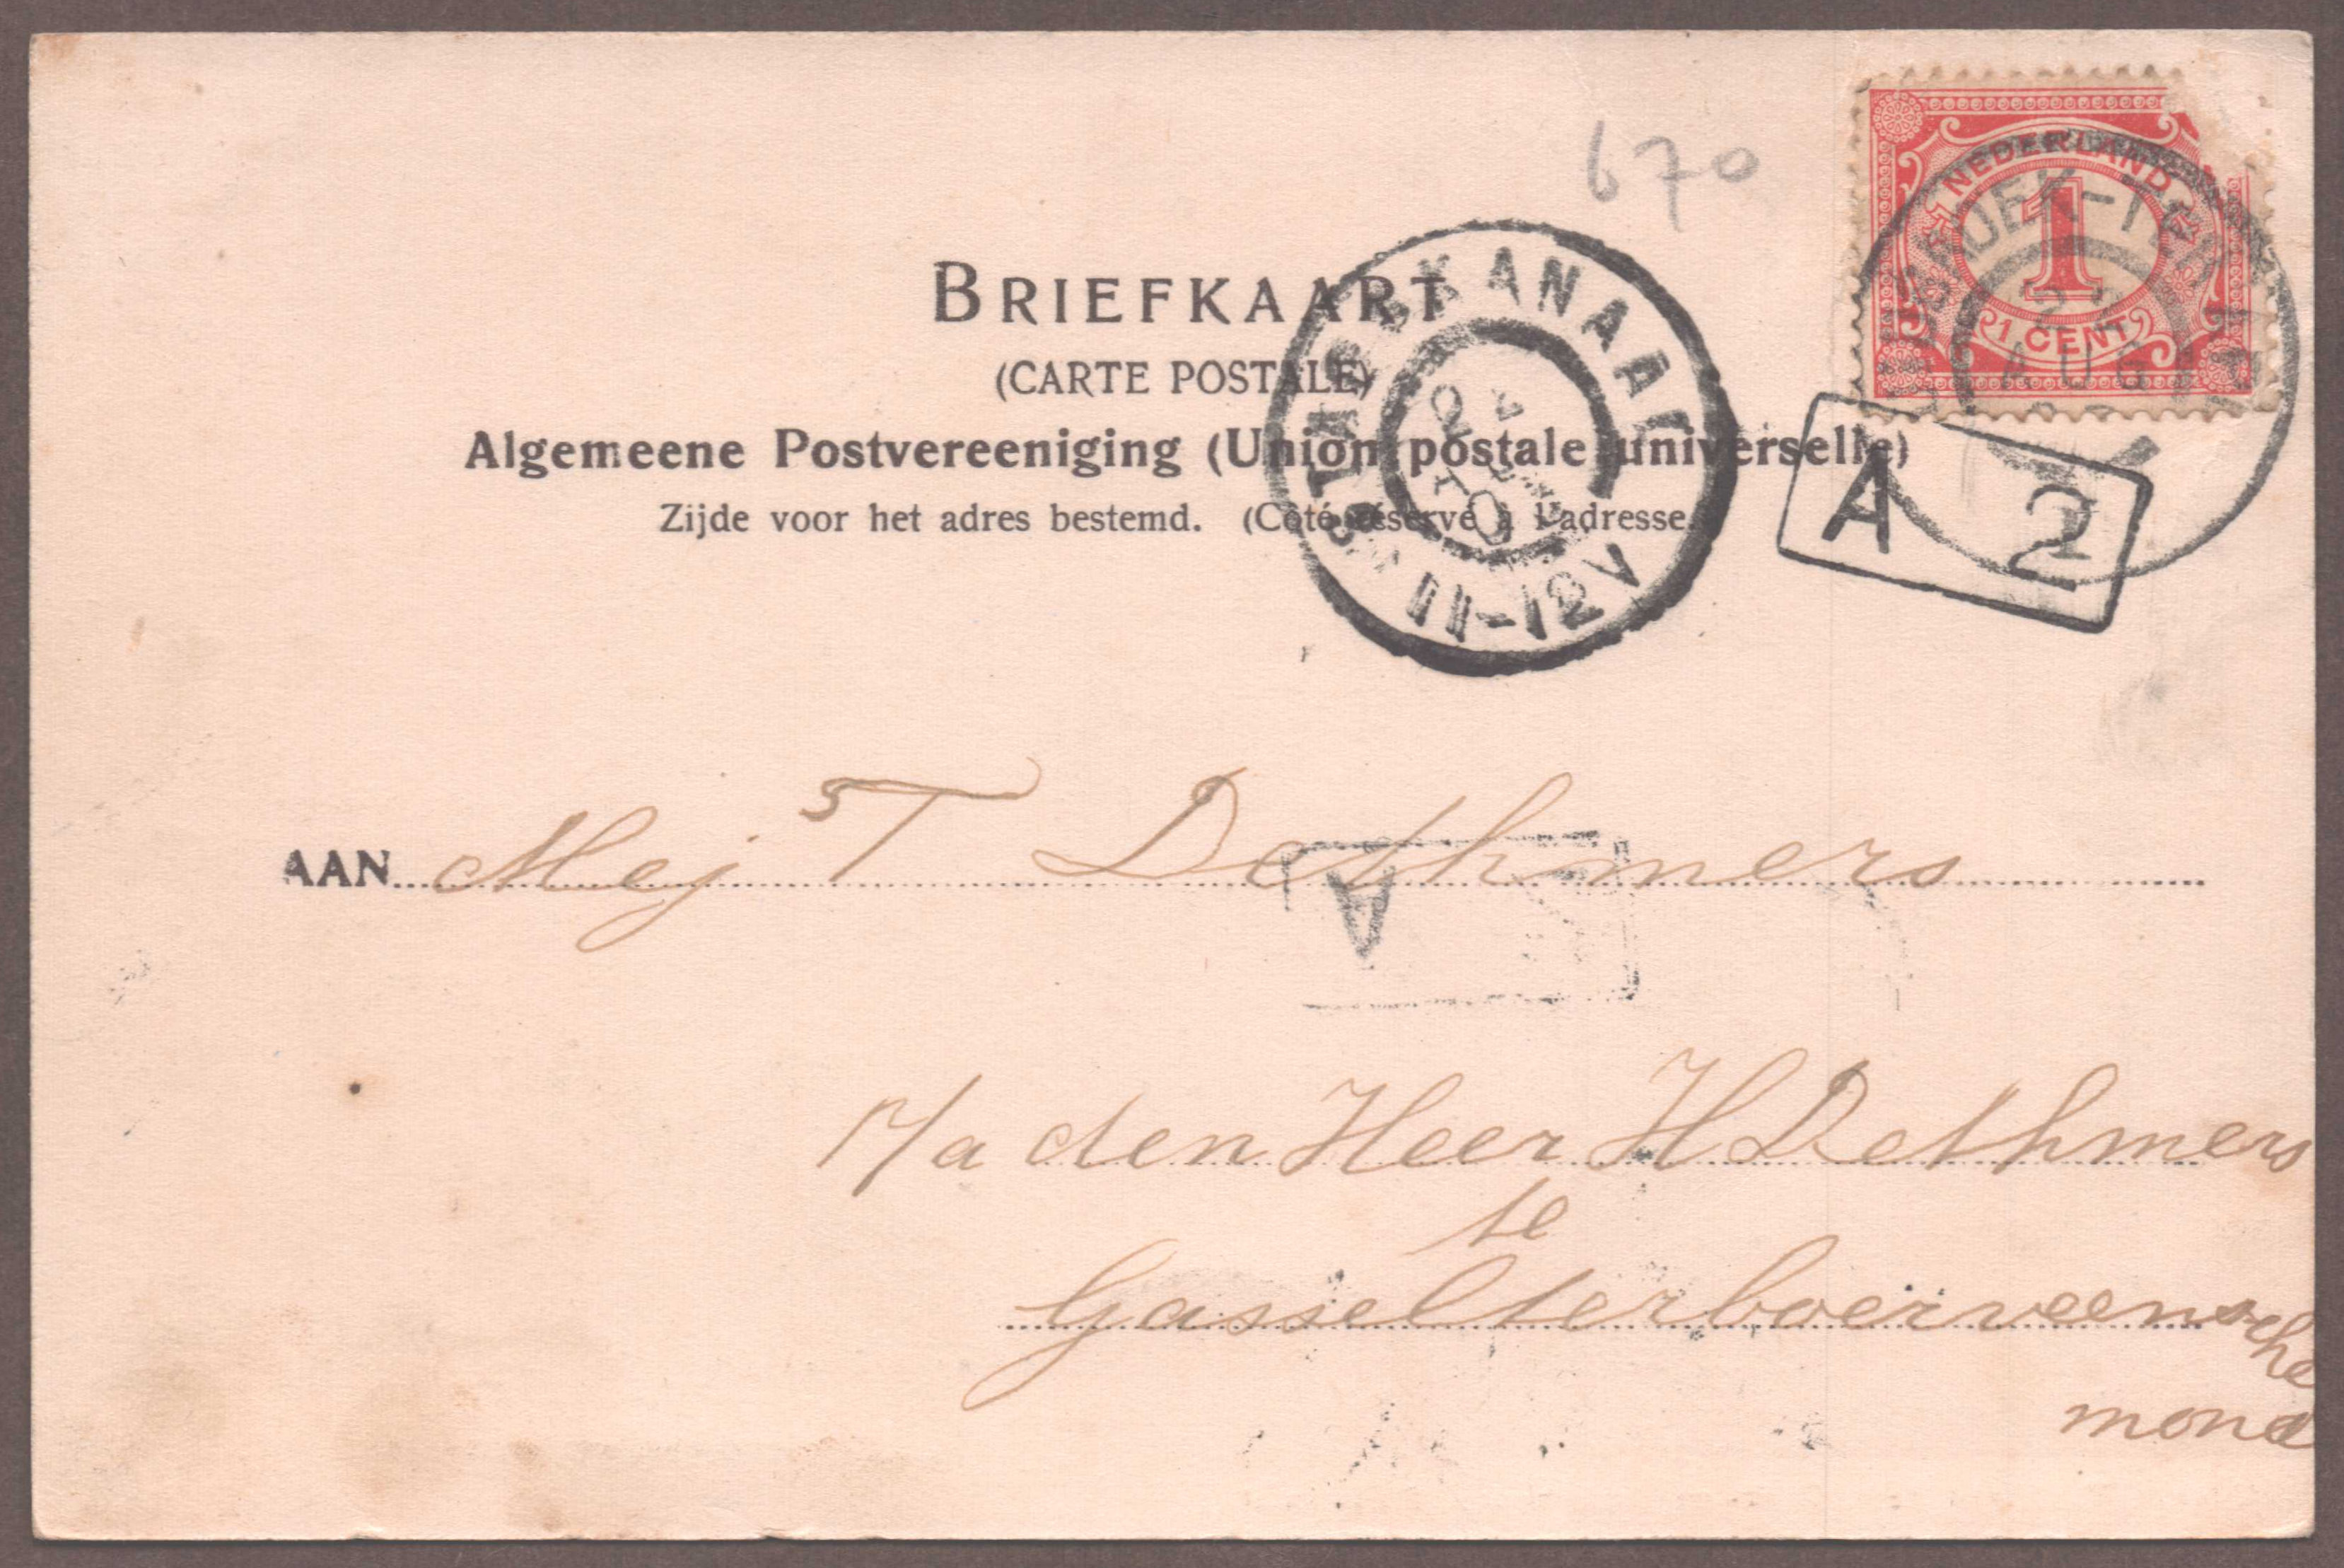 670
NEDERLAND
1
1 CENT
AUG
BRIEFKAART
(CARTE POSTALE)
Algemeene Postvereeniging (Union postale universelle)
Zijde voor het adres bestemd. (Côté réservé à l'adresse.
STADSKANAAL
11-12V
A 2
AAN Mej T Dethmers
A
p/a den Heer H Dethmers
te
Gasselterboerveensche
mond